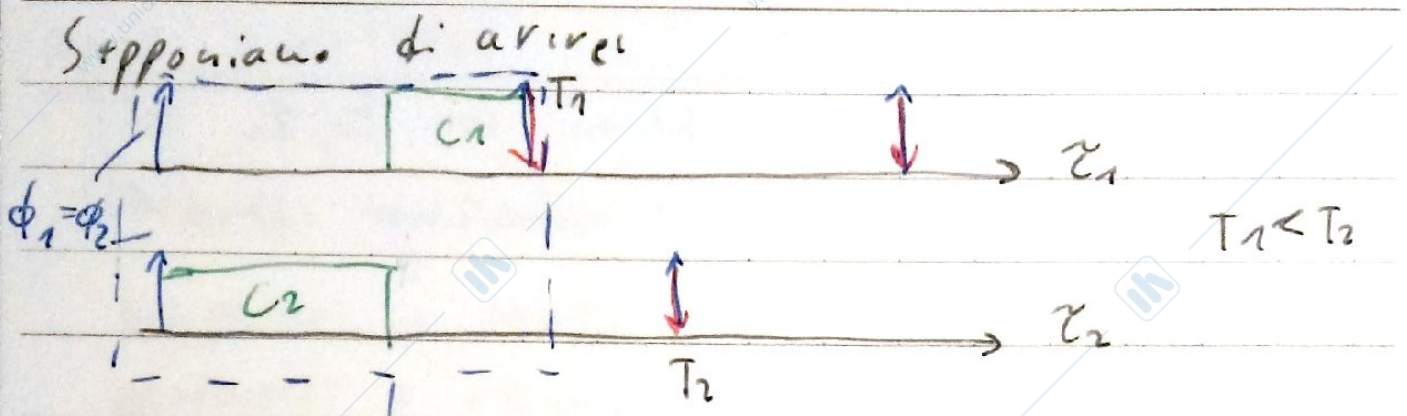 Supponiamo di avere:
T1
C1
τ1
ϕ1=ϕ2
T1<T2
C2
τ2
T2